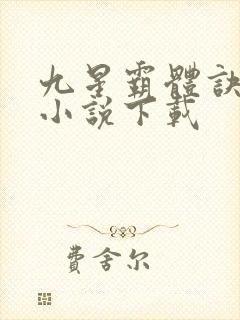 九星霸體訣
小說下載
費舍尔